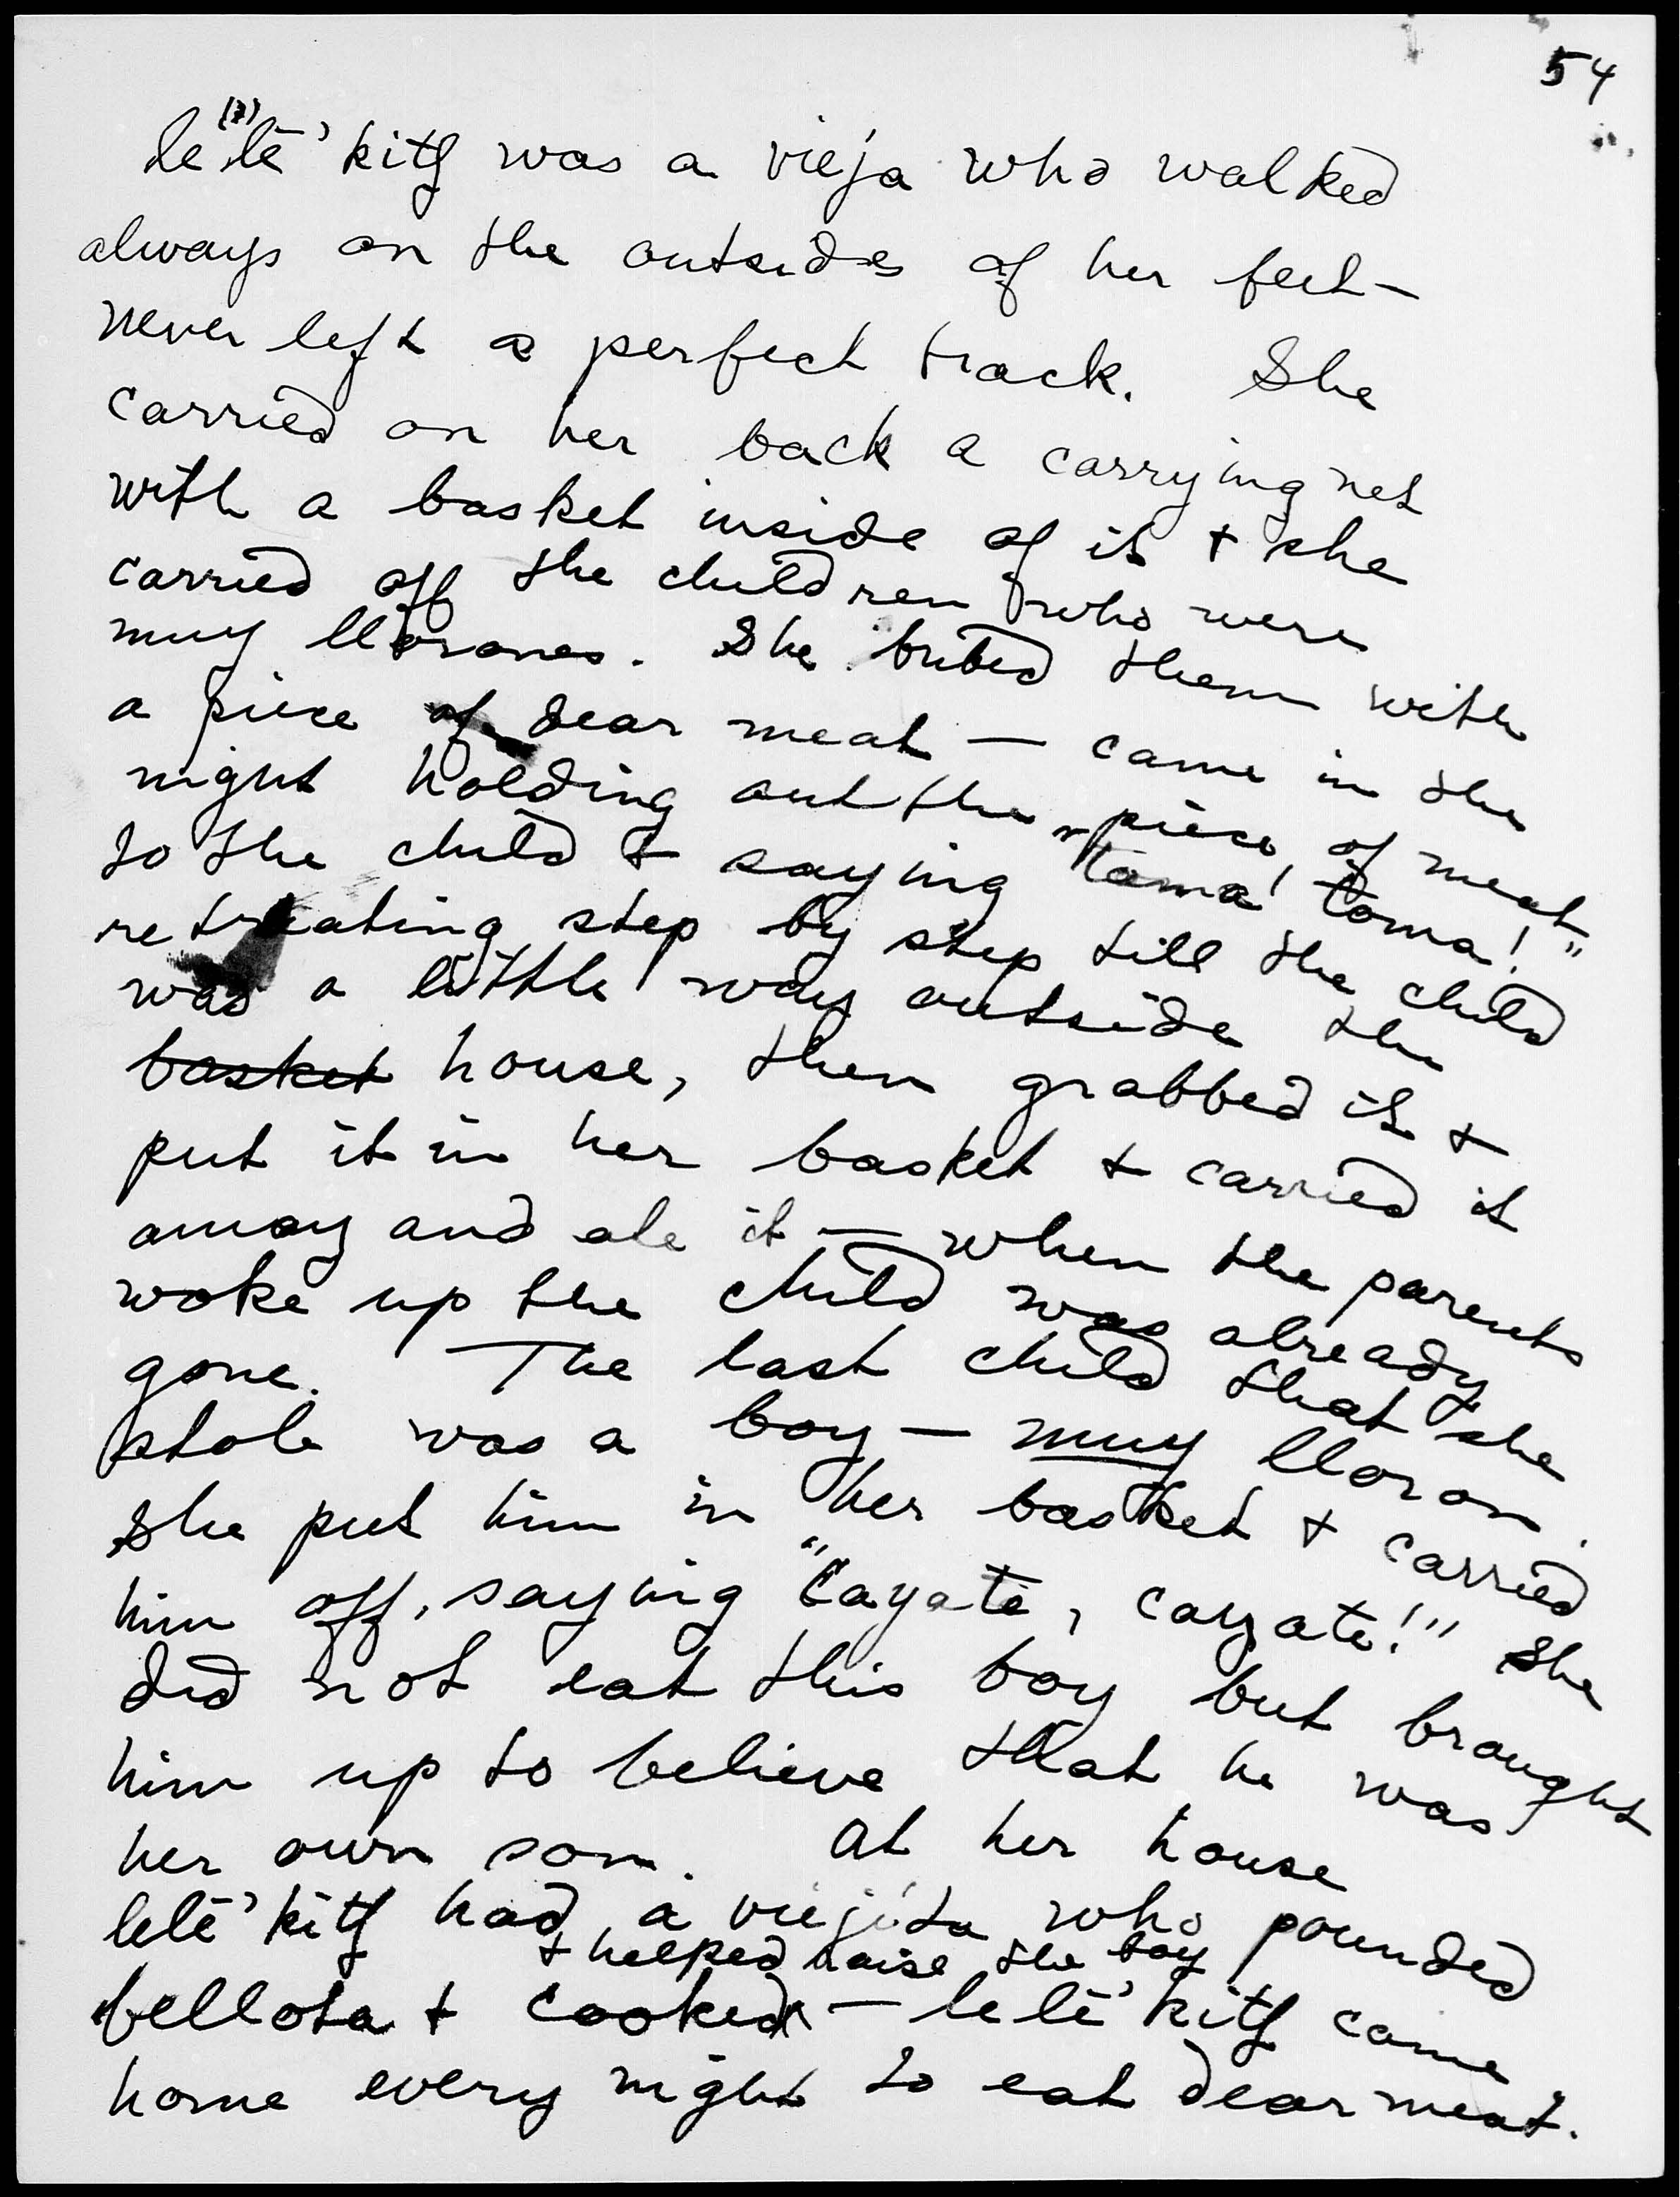 54
(?)
lelē'kitʃ was a vieja who walked
always on the outsides of her feet —
never left a perfect track. She
carried on her back a carrying net
with a basket inside of it + she
carried off the children who were
muy llorones. She bribed them with
a piece of dear meat — came in the
night holding out the piece of meat
to the child + saying "toma! toma!"
retreating step by step till the child
was a little way outside the
basket house, then grabbed it +
put it in her basket + carried it
away and ate it — when the parents
woke up the child was already
gone. The last child that she
stole was a boy — muy lloron.
She put him in her basket + carried
him off, saying "cayate, cayate!" She
did not eat this boy but brought
him up to believe that he was
her own son. At her house
lelē'kitʃ had a viejita who pounded
+ helped raise the boy
bellota + cooked — lelē'kitʃ came
home every night to eat dear meat.